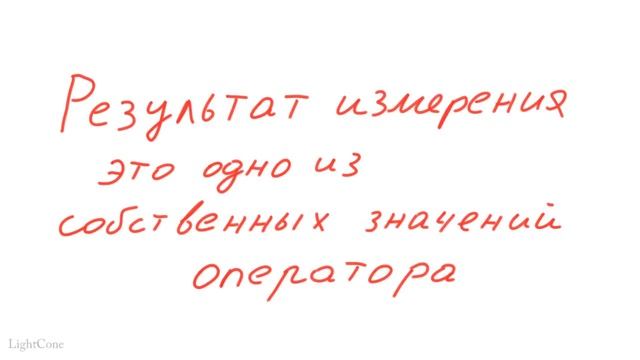 Результат измерения
это одно из
собственных значений
оператора
LightCone